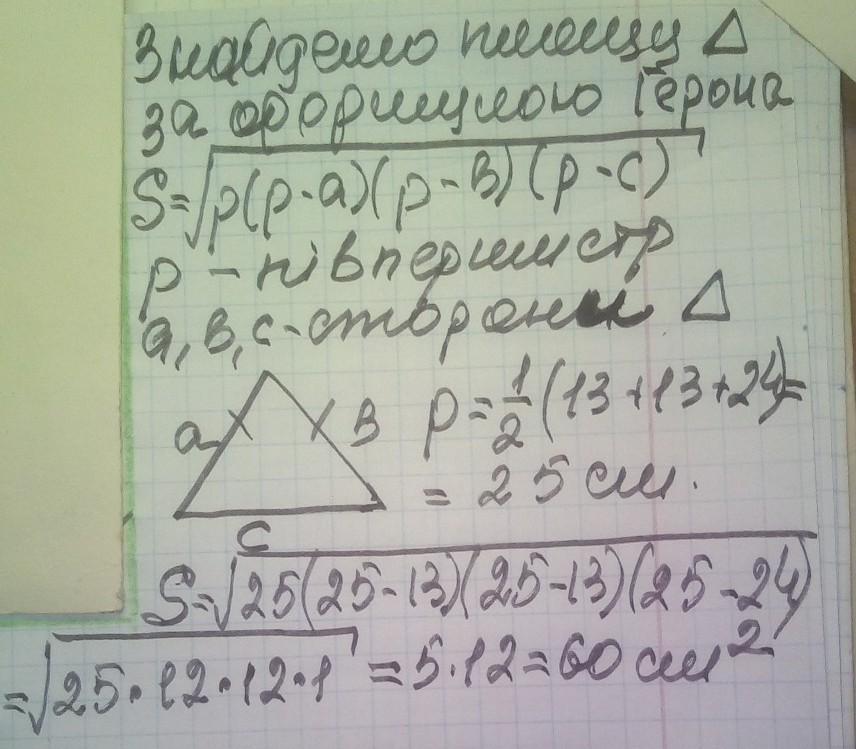 Знайдемо площу Δ
за формулою Герона
S=√p(p-a)(p-в)(p-c)
p - півпериметр
a, в, c - сторони Δ
a в p=1/2(13+13+24)=
= 25 см.
c
S=√25(25-13)(25-13)(25-24)
=√25·12·12·1 = 5·12=60 см²